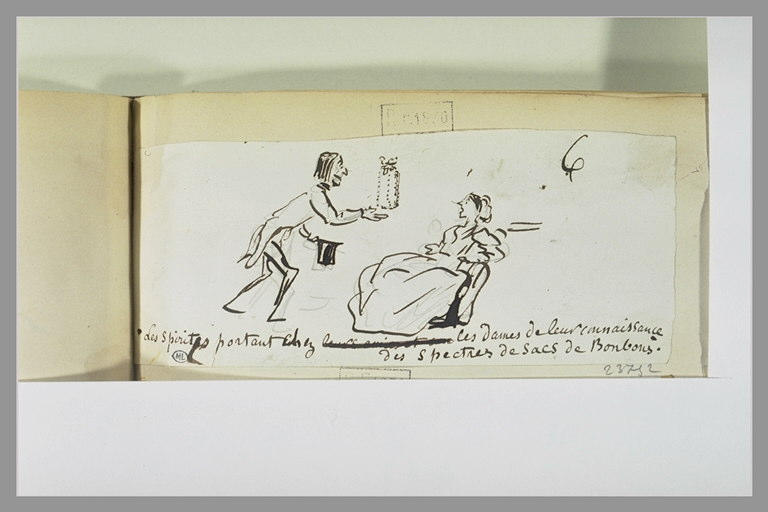 6
Les Spirites portant chez les Dames de leur connaissance
des Spectres de sacs de Bonbons.
ML